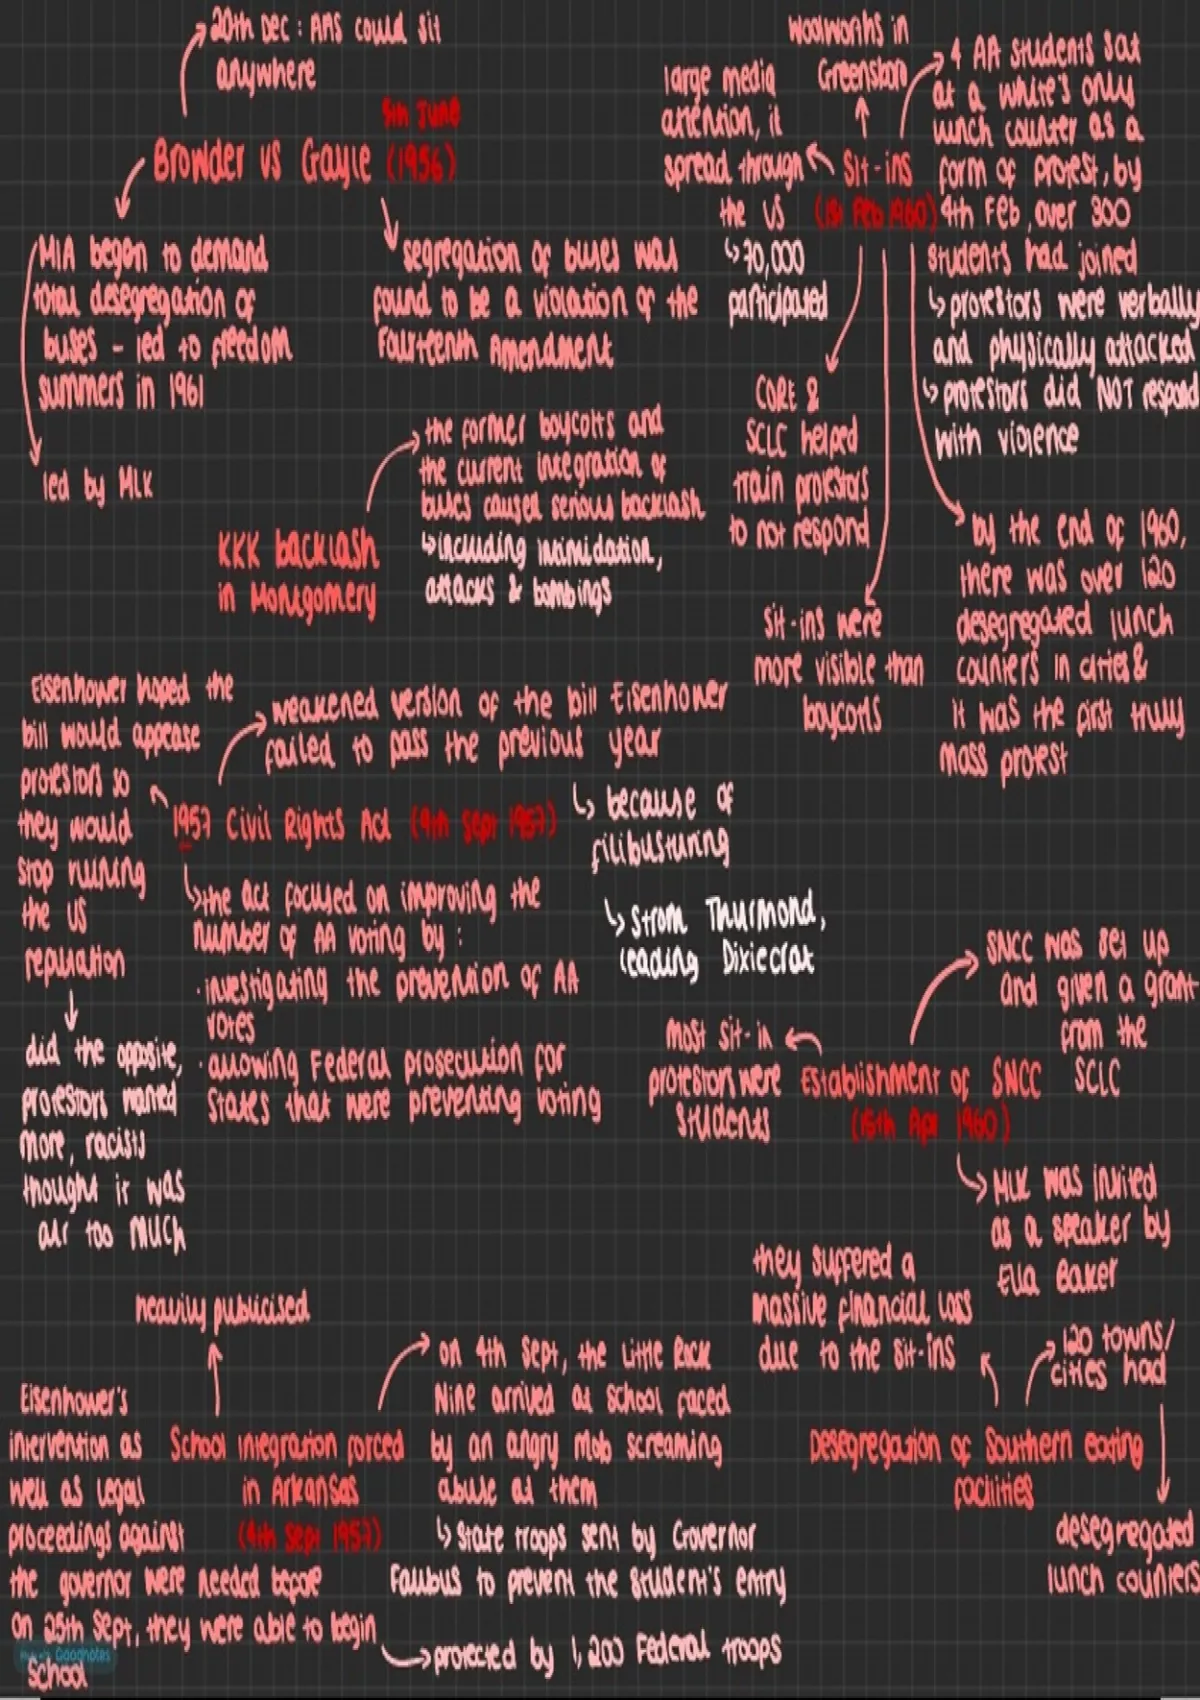 20th Dec : AAs could sit
anywhere
5th June
Browder vs Gayle (1956)
MIA began to demand
total desegregation of
buses - led to freedom
summers in 1961
led by MLK
segregation of buses was
found to be a violation of the
Fourteenth Amendment
the former boycotts and
the current integration of
buses caused serious backlash
↳including intimidation,
attacks & bombings
KKK backlash
in Montgomery
Eisenhower hoped the
bill would appease
protestors so
they would
stop ruining
the US
reputation
did the opposite,
protestors wanted
more, racists
thought it was
all too much
weakened version of the bill Eisenhower
failed to pass the previous year
↳ because of
filibusturing
↳ Strom Thurmond,
leading Dixiecrat
1957 Civil Rights Act (9th Sept 1957)
↳the act focused on improving the
number of AA voting by :
· investigating the prevention of AA
votes
· allowing Federal prosecution for
states that were preventing voting
heavily publicised
School integration forced
in Arkansas
(4th Sept 1957)
Eisenhower's
intervention as
well as legal
proceedings against
the governor were needed before
on 25th Sept, they were able to begin
school
on 4th Sept, the Little Rock
Nine arrived at school faced
by an angry mob screaming
abuse at them
↳ State troops sent by Governor
Faubus to prevent the student's entry
protected by 1,200 Federal troops
Goodnotes
Woolworths in
Greensboro
large media
attention, it
spread through
the US
↳70,000
participated
Sit-ins
(1st Feb 1960)
4 AA students sat
at a white's only
lunch counter as a
form of protest, by
4th Feb, over 300
students had joined
↳ protestors were verbally
and physically attacked
↳ protestors did NOT respond
with violence
CORE &
SCLC helped
train protestors
to not respond
Sit-ins were
more visible than
boycotts
by the end of 1960,
there was over 120
desegregated lunch
counters in cities &
it was the first truly
mass protest
SNCC was set up
and given a grant
from the
SCLC
most sit-in
protestors were
students
Establishment of SNCC
(15th Apr 1960)
MLK was invited
as a speaker by
Ella Baker
they suffered a
massive financial loss
due to the sit-ins
120 towns/
cities had
Desegregation of Southern eating
facilities
desegregated
lunch counters